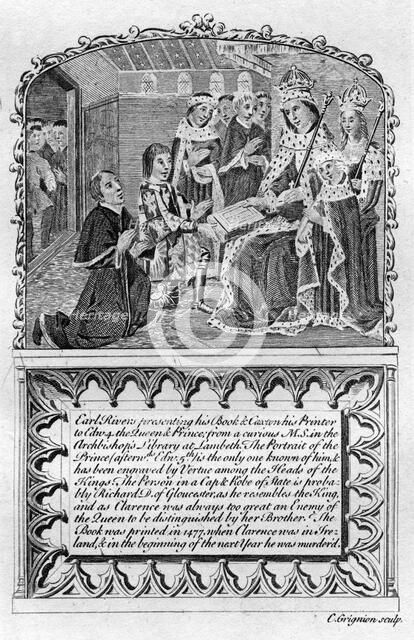 Earl Rivers presenting his Book & Caxton his Printer
to Edw. 4. the Queen & Prince; from a curious M.S. in the
Archbishop's Library at Lambeth. The Portrait of the
Prince (afterwds. Edw. 5th.) is the only one known of him, & 
has been engraved by Vertue among the Heads of the
Kings. The Person in a Cap & Robe of State is proba-
bly Richard D. of Gloucester, as he resembles the King,
and as Clarence was always too great an Enemy of
the Queen to be distinguished by her Brother. The
Book was printed in 1477, when Clarence was in Ire-
land, & in the beginning of the next Year he was murder'd.
C. Grignion sculp.